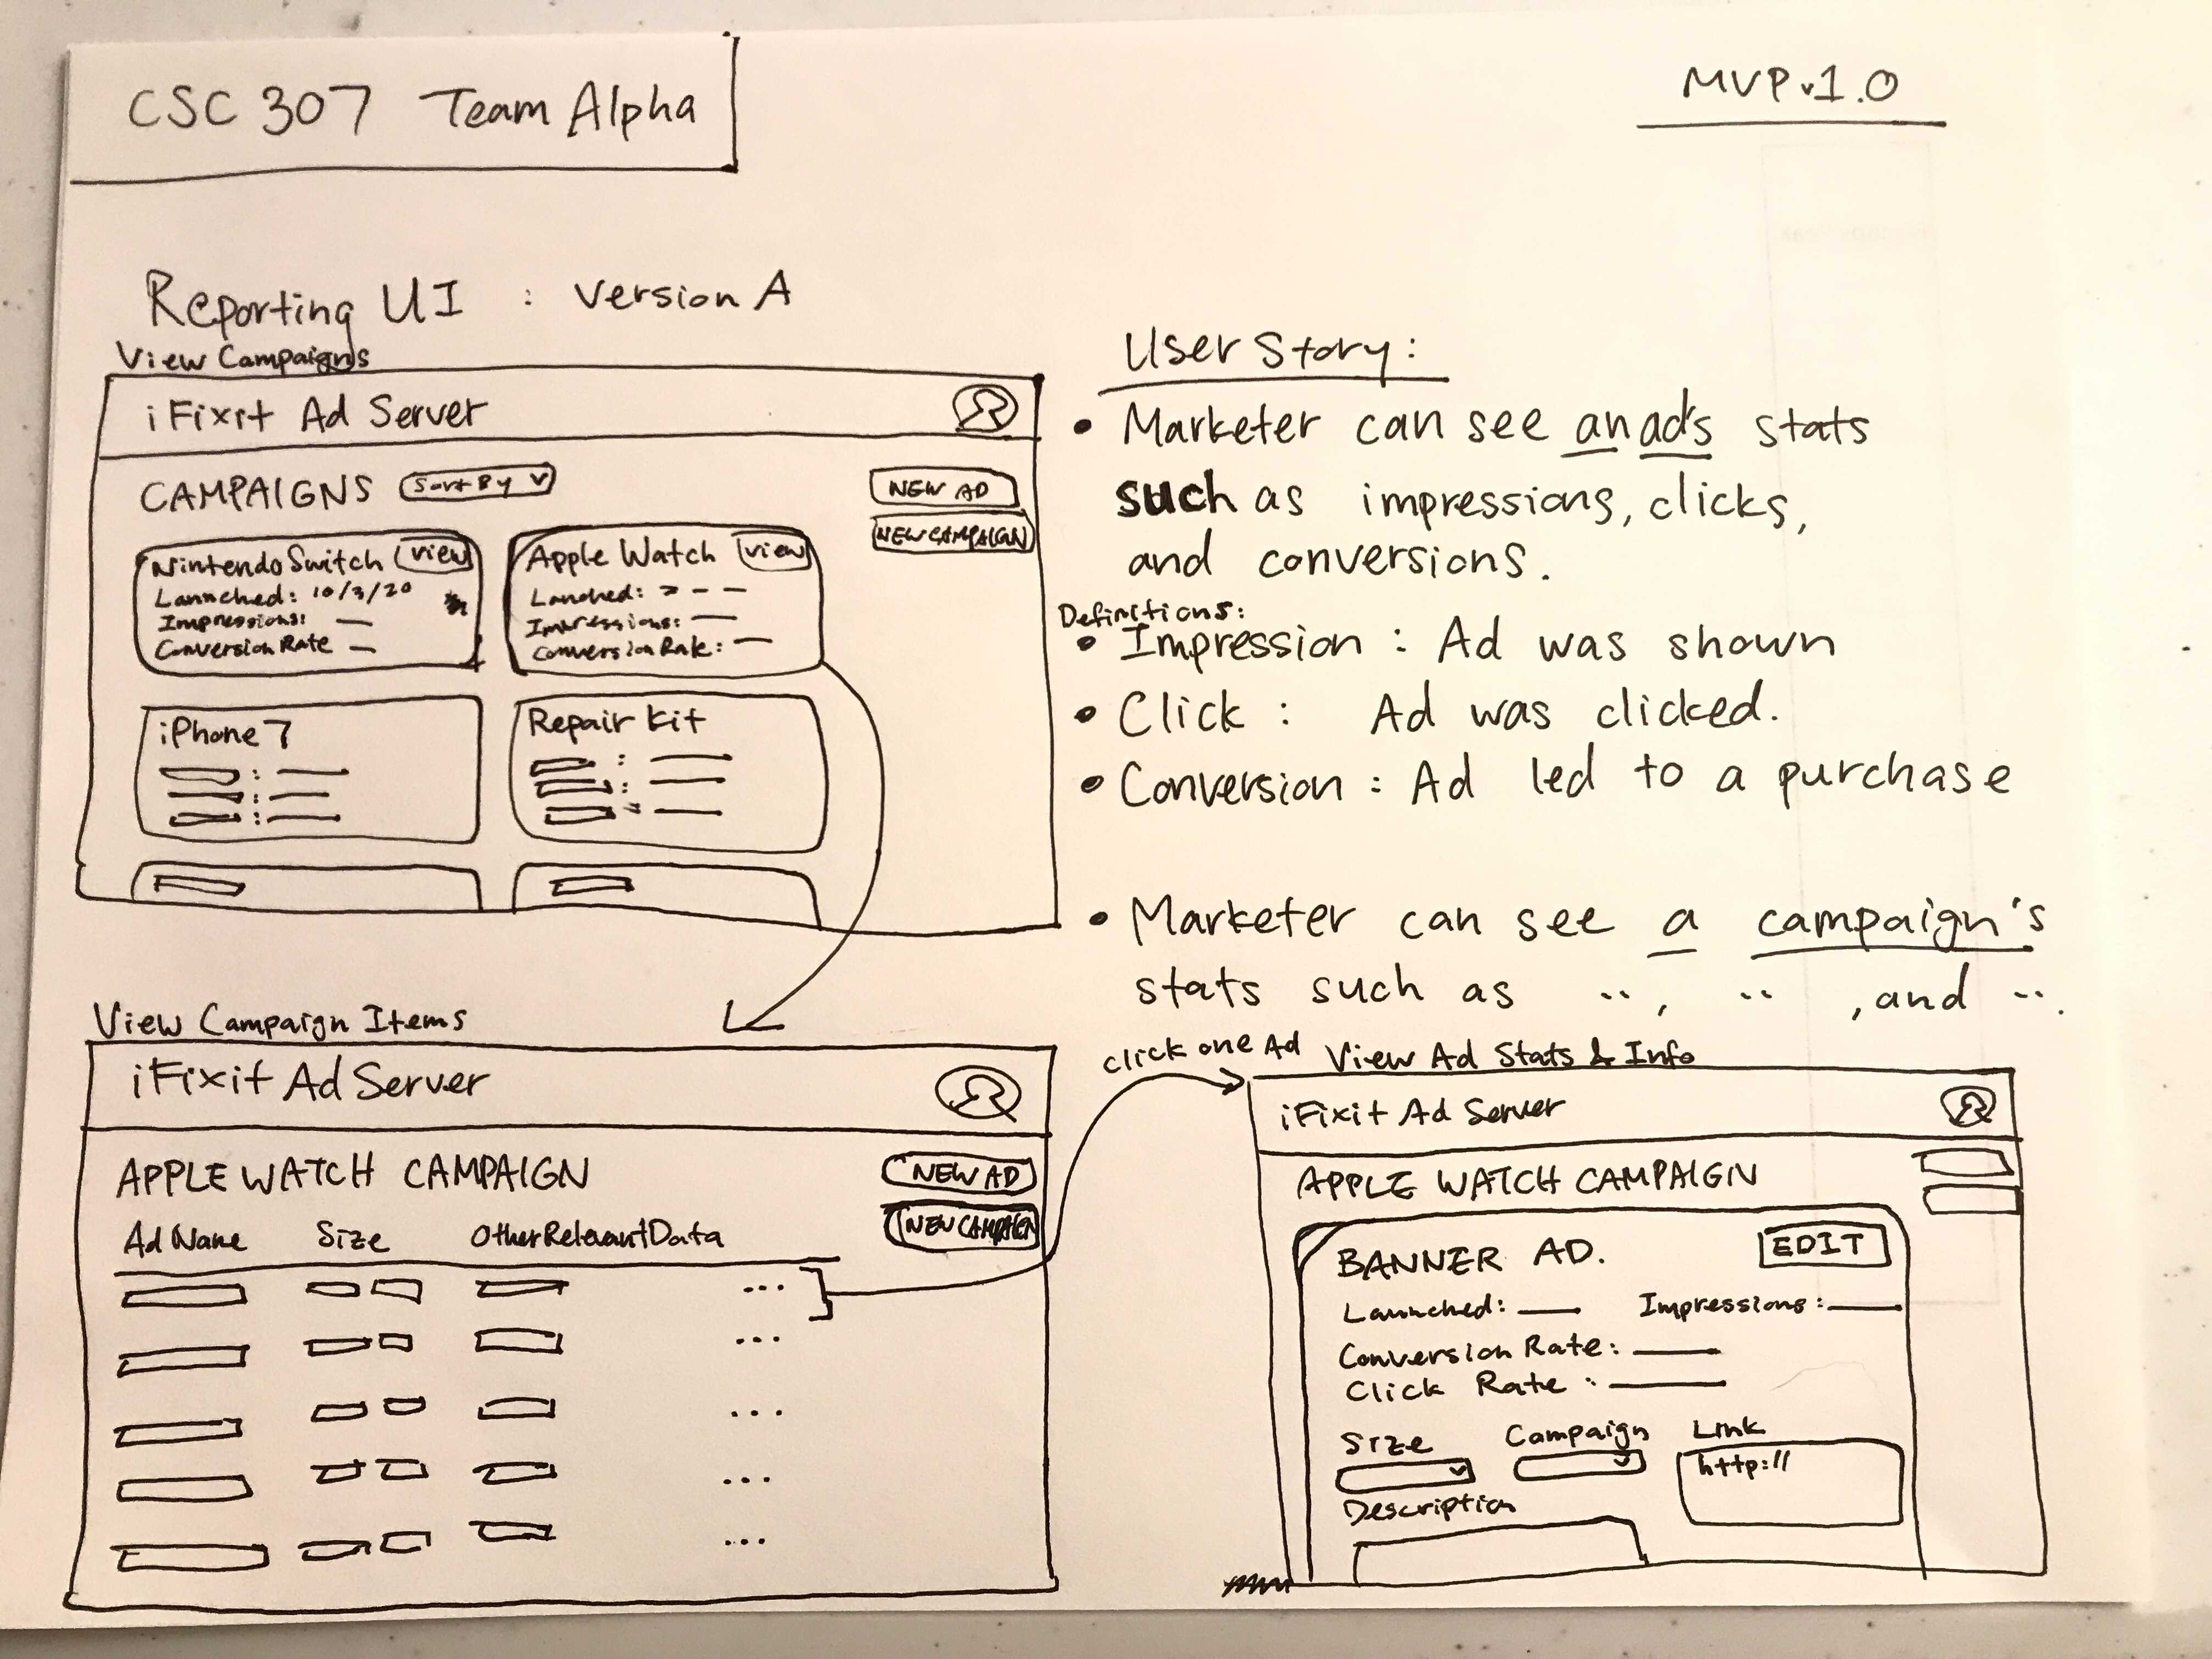 CSC 307 Team Alpha
MVP v1.0
Reporting UI : Version A
View Campaigns
iFixit Ad Server
CAMPAIGNS Sort By
NEW AD
NEW CAMPAIGN
Nintendo Switch view
Launched: 10/3/20
Impressions:
Conversion Rate
Apple Watch view
Lanched:
Impressions:
Conversion Rate:
iPhone 7
Repair Kit
User Story:
• Marketer can see an ad's stats
such as impressions, clicks,
and conversions.
Definitions:
• Impression : Ad was shown
• Click : Ad was clicked.
• Conversion : Ad led to a purchase
• Marketer can see a campaign's
stats such as .., .. , and ...
View Campaign Items
iFixit Ad Server
APPLE WATCH CAMPAIGN
NEW AD
NEW CAMPAIGN
Ad Name Size Other Relevant Data
...
...
...
...
...
click one Ad
View Ad Stats & Info
iFixit Ad Server
APPLE WATCH CAMPAIGN
BANNER AD. EDIT
Launched: Impressions:
Conversion Rate:
Click Rate :
Size Campaign Link
http://
Description